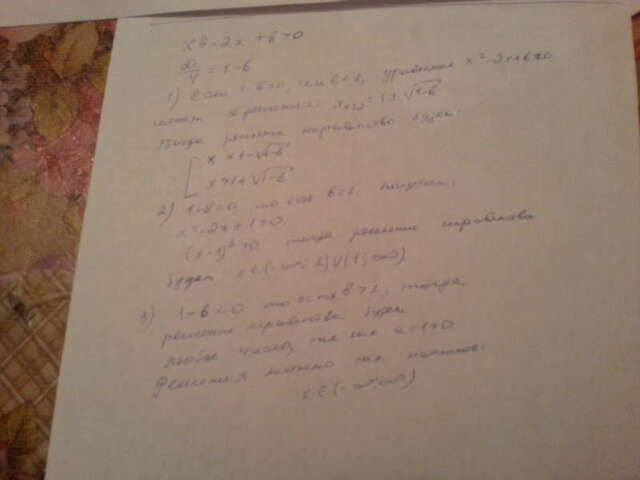 x² - 2x + b > 0
D/4 = 1 - b
1) Если 1-b>0, b<1, уравнение x² - 2x+b=0
имеет 2 решения: x₁,₂ = 1 ± √1-b
Тогда решение неравенства будет:
[ x < 1 - √1-b
x > 1 + √1-b
2) 1-b=0, то есть b=1. получим:
x² - 2x + 1 > 0.
(x-1)² > 0, тогда решение неравенства
будет x ∈ (-∞; 1) ∪ (1; ∞)
3) 1-b<0 то есть b>1, тогда
решение неравенства будет
любое число, так как a=1>0.
Решения можно так
x ∈ (-∞; ∞)